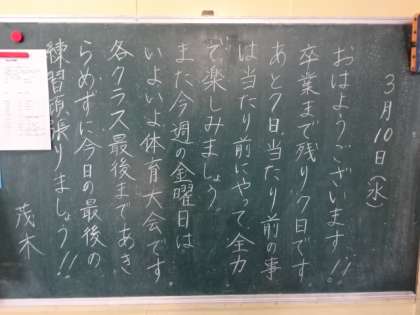 3月10日(水)
おはようございます!!
卒業まで残り7日です。
あと7日、当たり前の事
は当たり前にやって、全力
で楽しみましょう。
また、今週の金曜日は
いよいよ体育大会です。
各クラス、最後まであき
らめずに今日の最後の
練習頑張りましょう!!
茂木